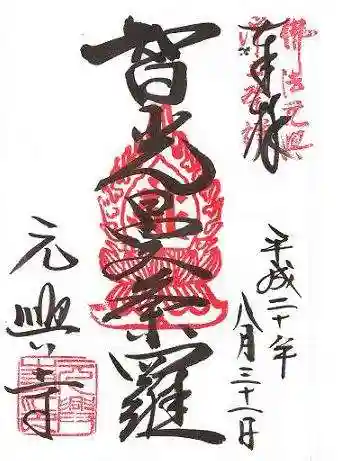 奉拝
佛法元興
平成二十年
八月三十一日
智光曼荼羅
元興寺